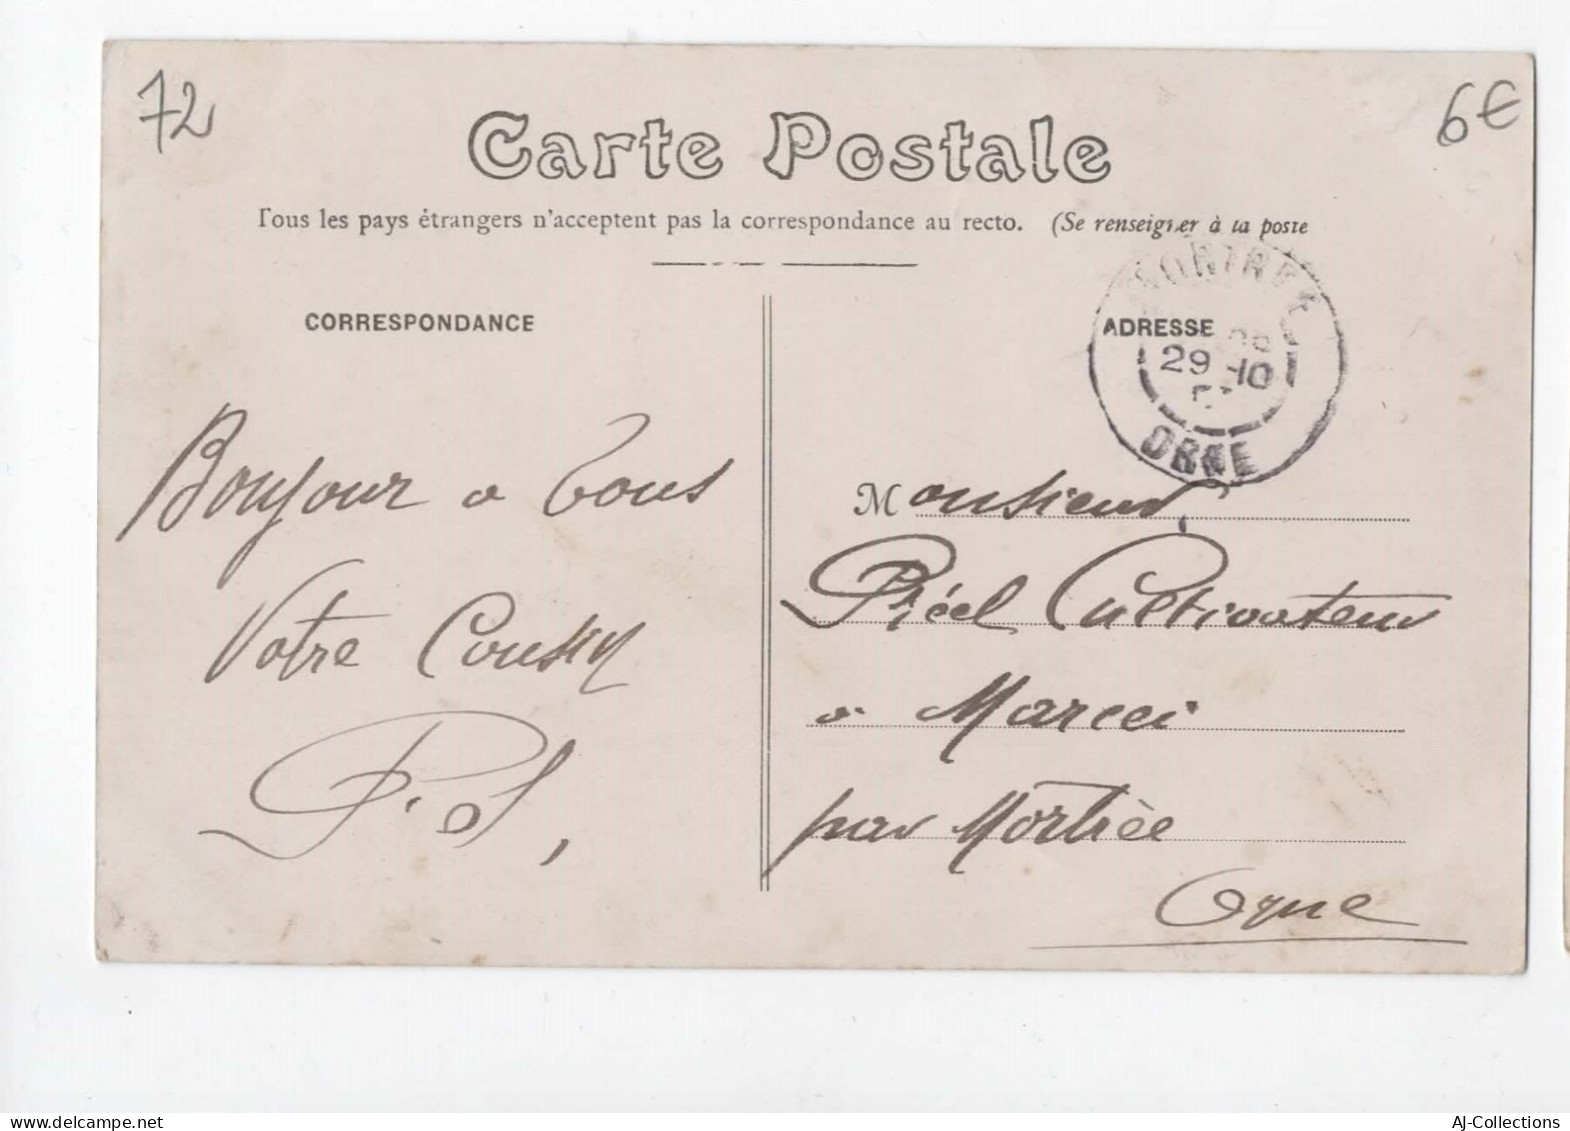 72
6€
Carte Postale
Tous les pays étrangers n'acceptent pas la correspondance au recto. (Se renseigner à la poste
CORRESPONDANCE
ADRESSE
MORTREE
29-10
ORNE
Bonjour a tous
Votre Cousin
P. S,
Monsieur
Piéel Cultivateur
a Marcei
par Mortrèe
Orne
AJ-Collections